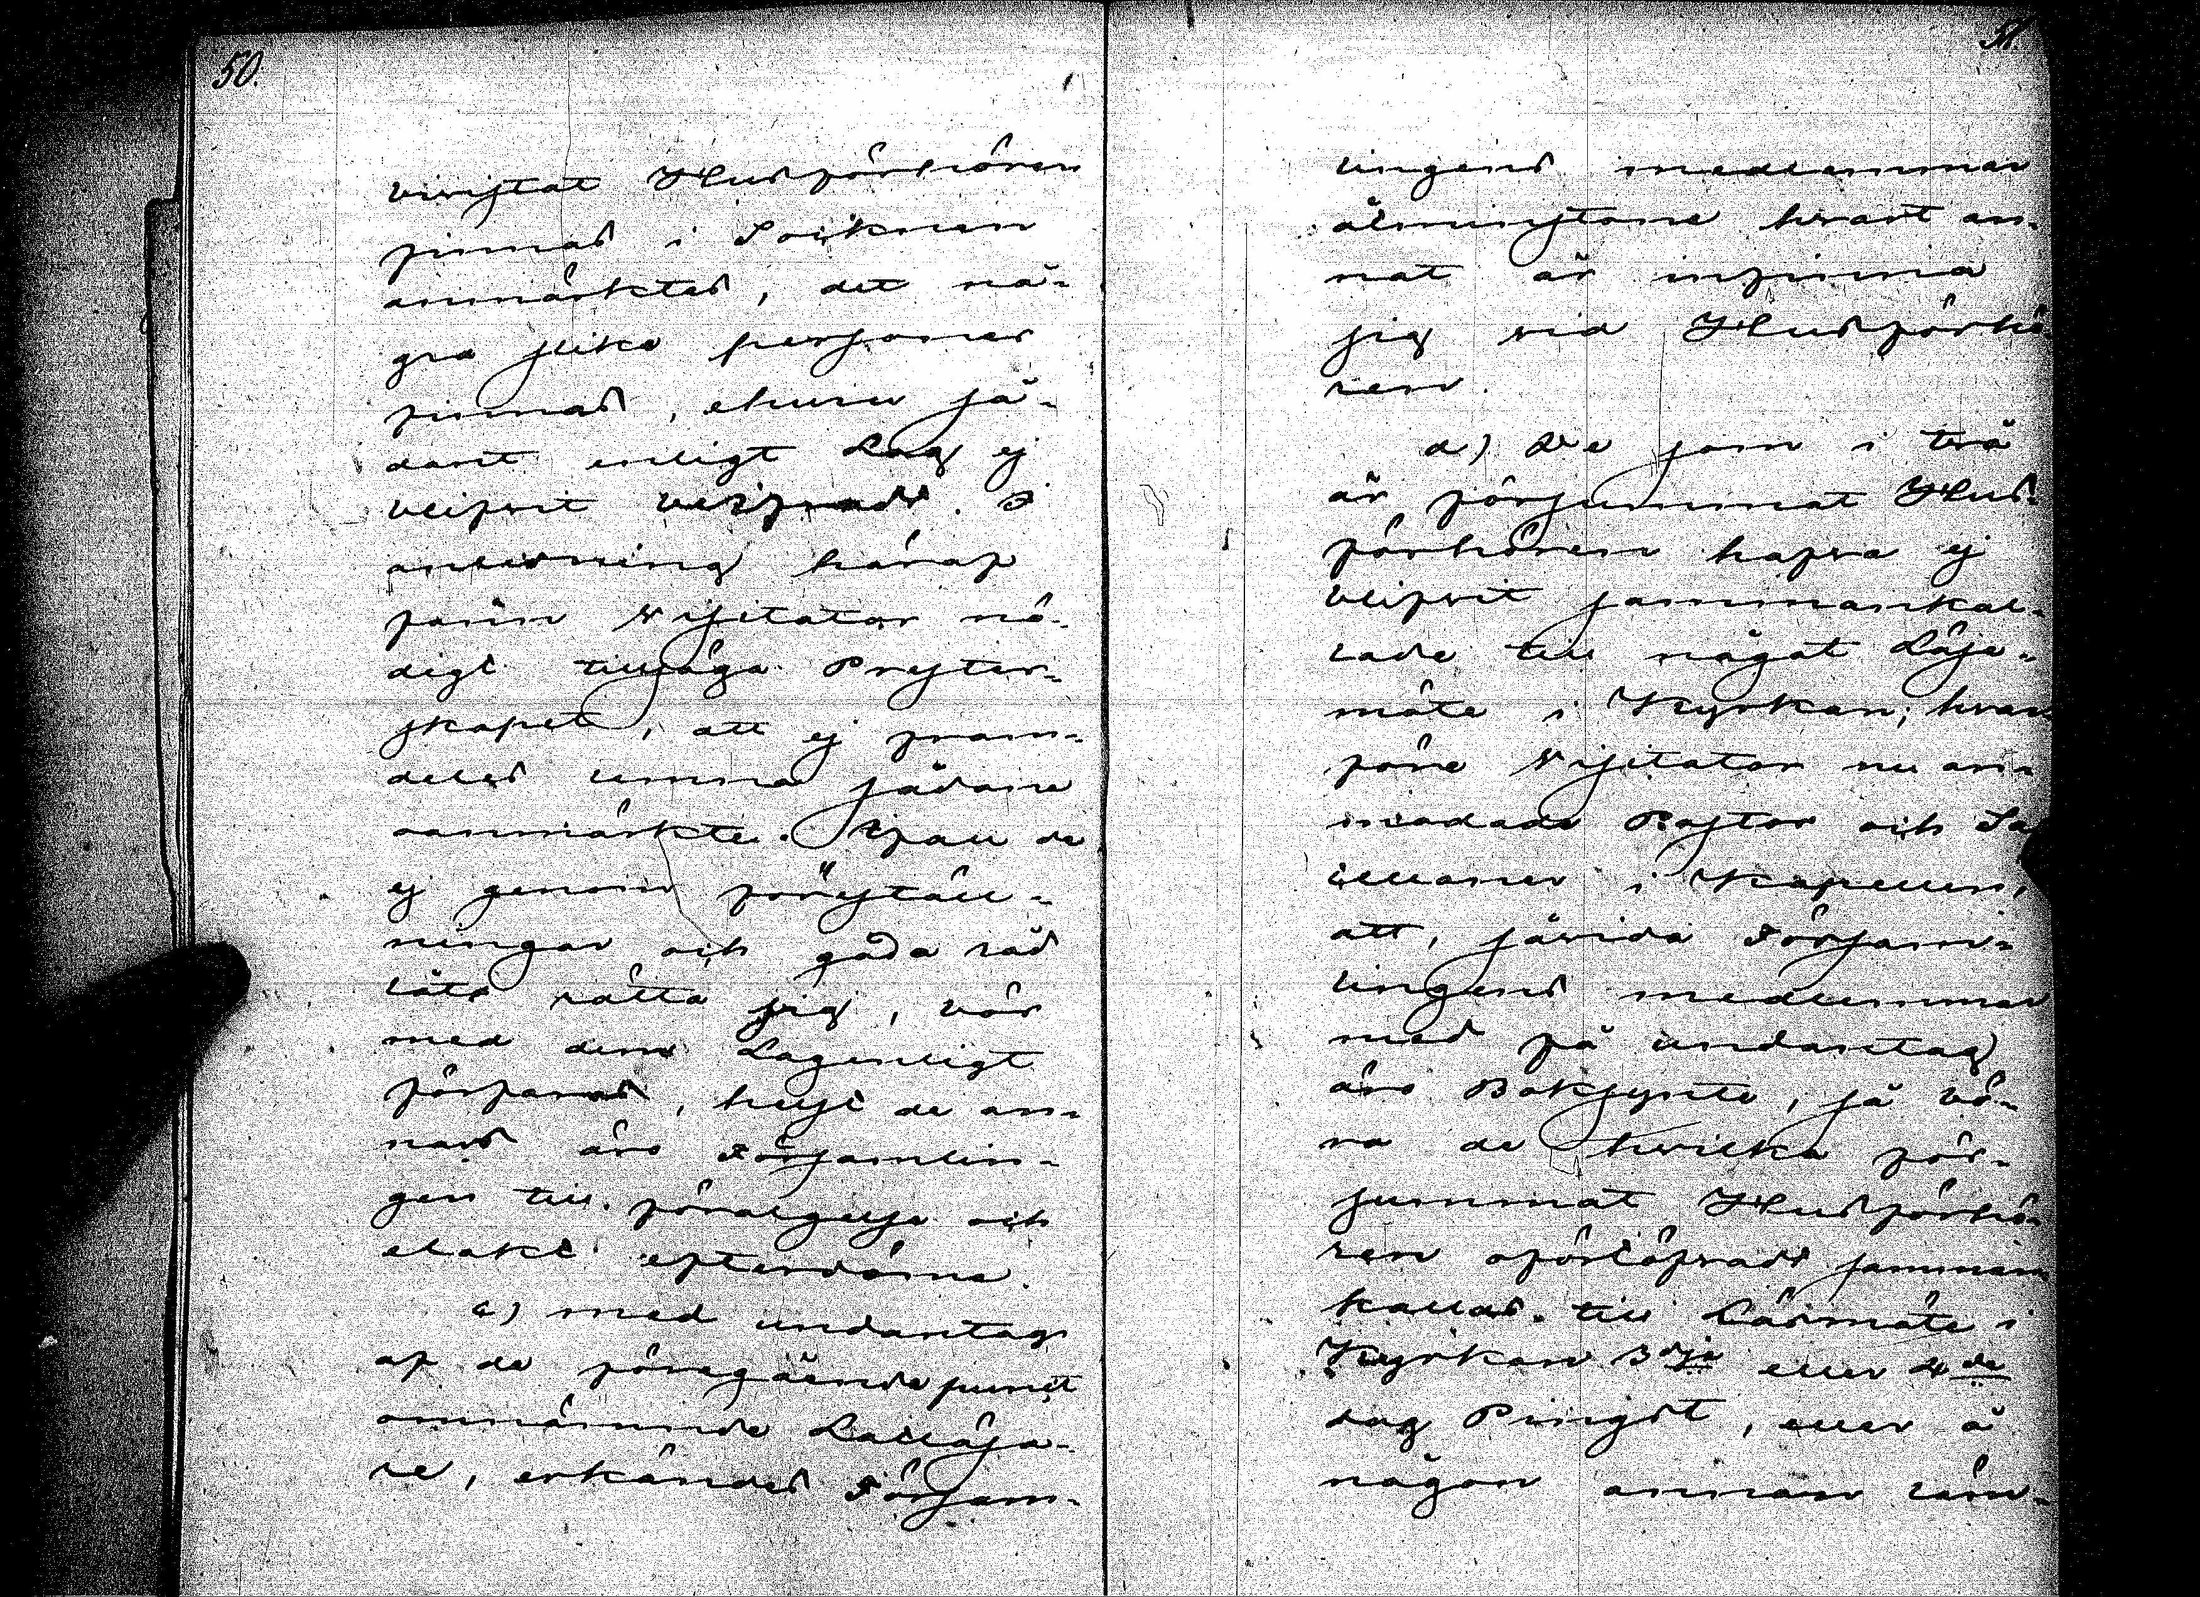 50.
bivistat Husförhören
finnas i Socknen
anmärktes, det nå-
gra slike personer
finnas, ehuru så-
dant enligt Lag ej
blifvit beifradt. I
anledning häraf
fann Visitator nö-
digt tillsäga Prester-
skapet, att ej fram-
deles lemna sådane
oanmärkte. Skall de
ej genom föreställ-
ningar och goda råd
låta rätta sig, bör
med dem Lagenligt
förfaras, helst de an-
nars äro Församlin-
gen till förargelse och
elakt efterdöme.
c) med undantag
af de föregående punct
omnämnde Lattläsa-
re, erkändes Försam-
51.
lingens medlemmar
åtminstone hvart an-
nat år infinna
sig vid Husförhö
ren.
d) De som i två
år försummat Hus-
förhören hafva ej
blifvit sammankal-
lade till något Läse-
möte i Kyrkan; hvar-
före Visitator nu an-
modade Pastor och Sa
cellaner i Kapellen,
att, såvida Försam-
lingens medlemmar
med få undantag
äro Boksynte, så bö-
ra de hvilka för-
summat Husförhö-
ren oförtöfvadt samman
kallas till Läsmöte i
Kyrkan 3dje eller 4de
dag Pingst, eller å
någon annan läm-